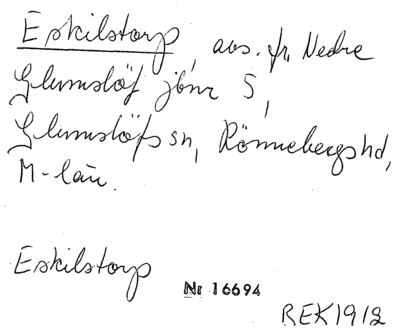 Eskilstorp, avs. fr. Nedre
Glumslöf jbnr 5,
Glumslöfs sn, Rönnebergs hd,
M-län.
Eskilstorp
Nr 16694
REK1912